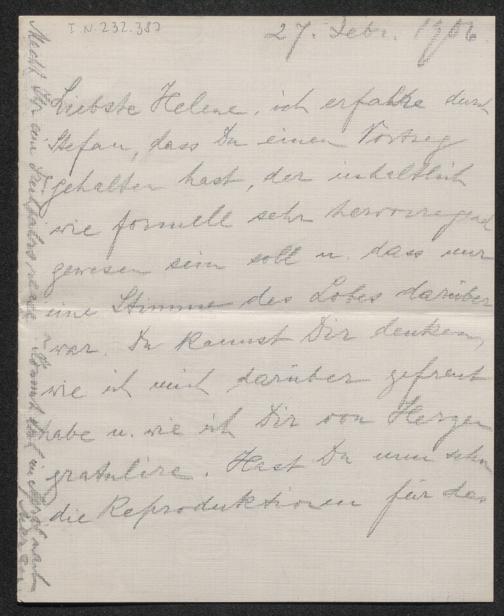 I.N. 232.387
27. Febr. 1906.
Liebste Helene, ich erfahre durch
Stefan, dass Du einen Vortrag
gehalten hast, der inhaltlich
wie formell sehr hervorragend
gewesen sein soll u. dass nur
eine Stimme des Lobes darüber
war. Du kannst Dir denken,
wie ich mich darüber gefreut
habe u. wie ich Dir von Herzen
gratulire. Hast Du nun schon
die Reproduktionen für das
Macht Ihr eine Frühjahrsreise? Kommt doch in nach
Meran